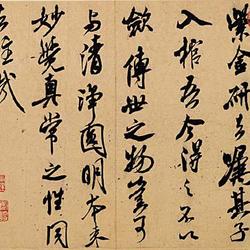 紫金研去囑其子
入棺吾今得之不以
斂傳世之物豈可
与清淨圓明本來
妙覺真常之性同
去住哉